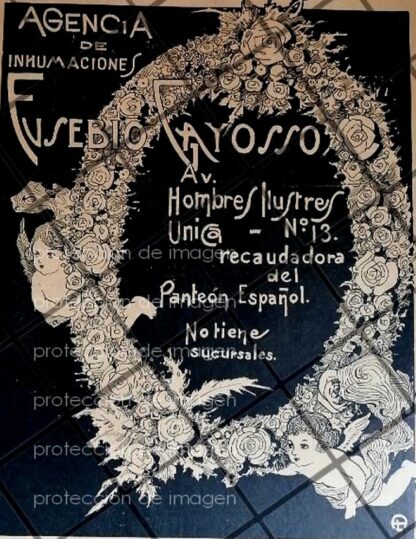 AGENCIA
DE
INHUMACIONES
EUSEBIO GAYOSSO
Av.
Hombres Ilustres
Unica - No 13.
recaudadora
del
Panteón Español.
No tiene
sucursales.
protección de imagen
protección de imagen
protección de imagen
protección de imagen
protección de imagen
protección de imagen